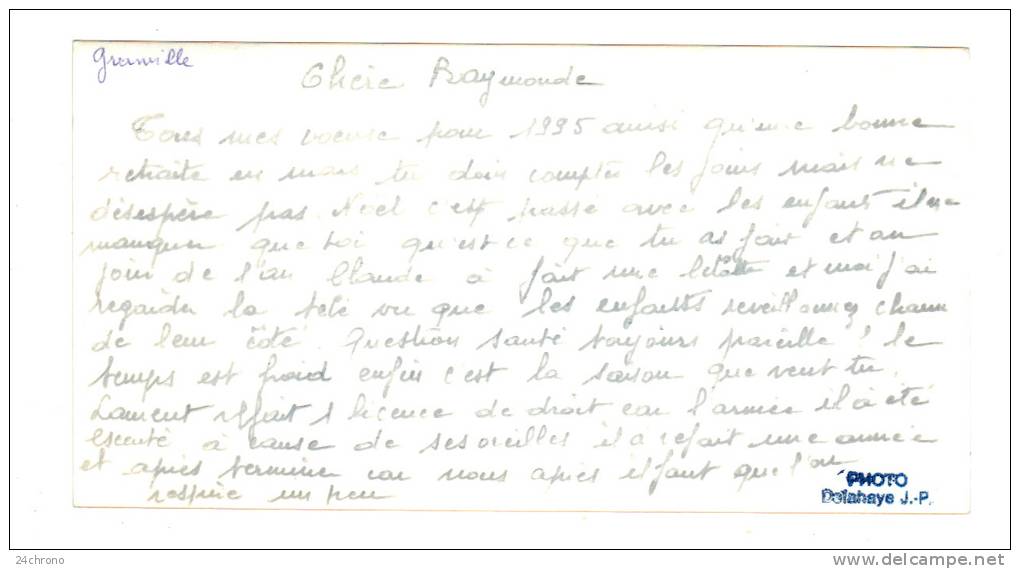 Granville
Chère Raymonde
Tous mes voeuse pour 1995 ainsi qu'une bonne
retraite en mars tu dois compter les joins mais ne
désespère pas. Noel c'est passé avec les enfants il ne
manquer que toi qu'est ce que tu as fait et au
join de l'an Claude à fait une et moi j'ai
regarder la télé vu que les enfants reveillonnez chacun
de leur côté. Question santé toujours pareille ! le
temps est froid enfin c'est la saison que veut tu.
Laurent refait 1 licence de droit car l'armée il à été
à cause de ses oreilles il à refait une année
et après termine car nous après il faut que l'on
respire un peu
PHOTO
Delahaye J.-P.
24chrono
www.delcampe.net